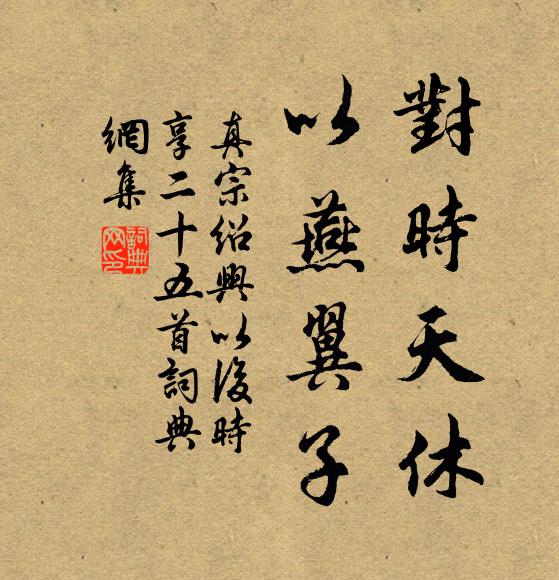 對時天休
以燕翼子
真宗紹興以後時
享二十五首詞典
網集
詞典網印